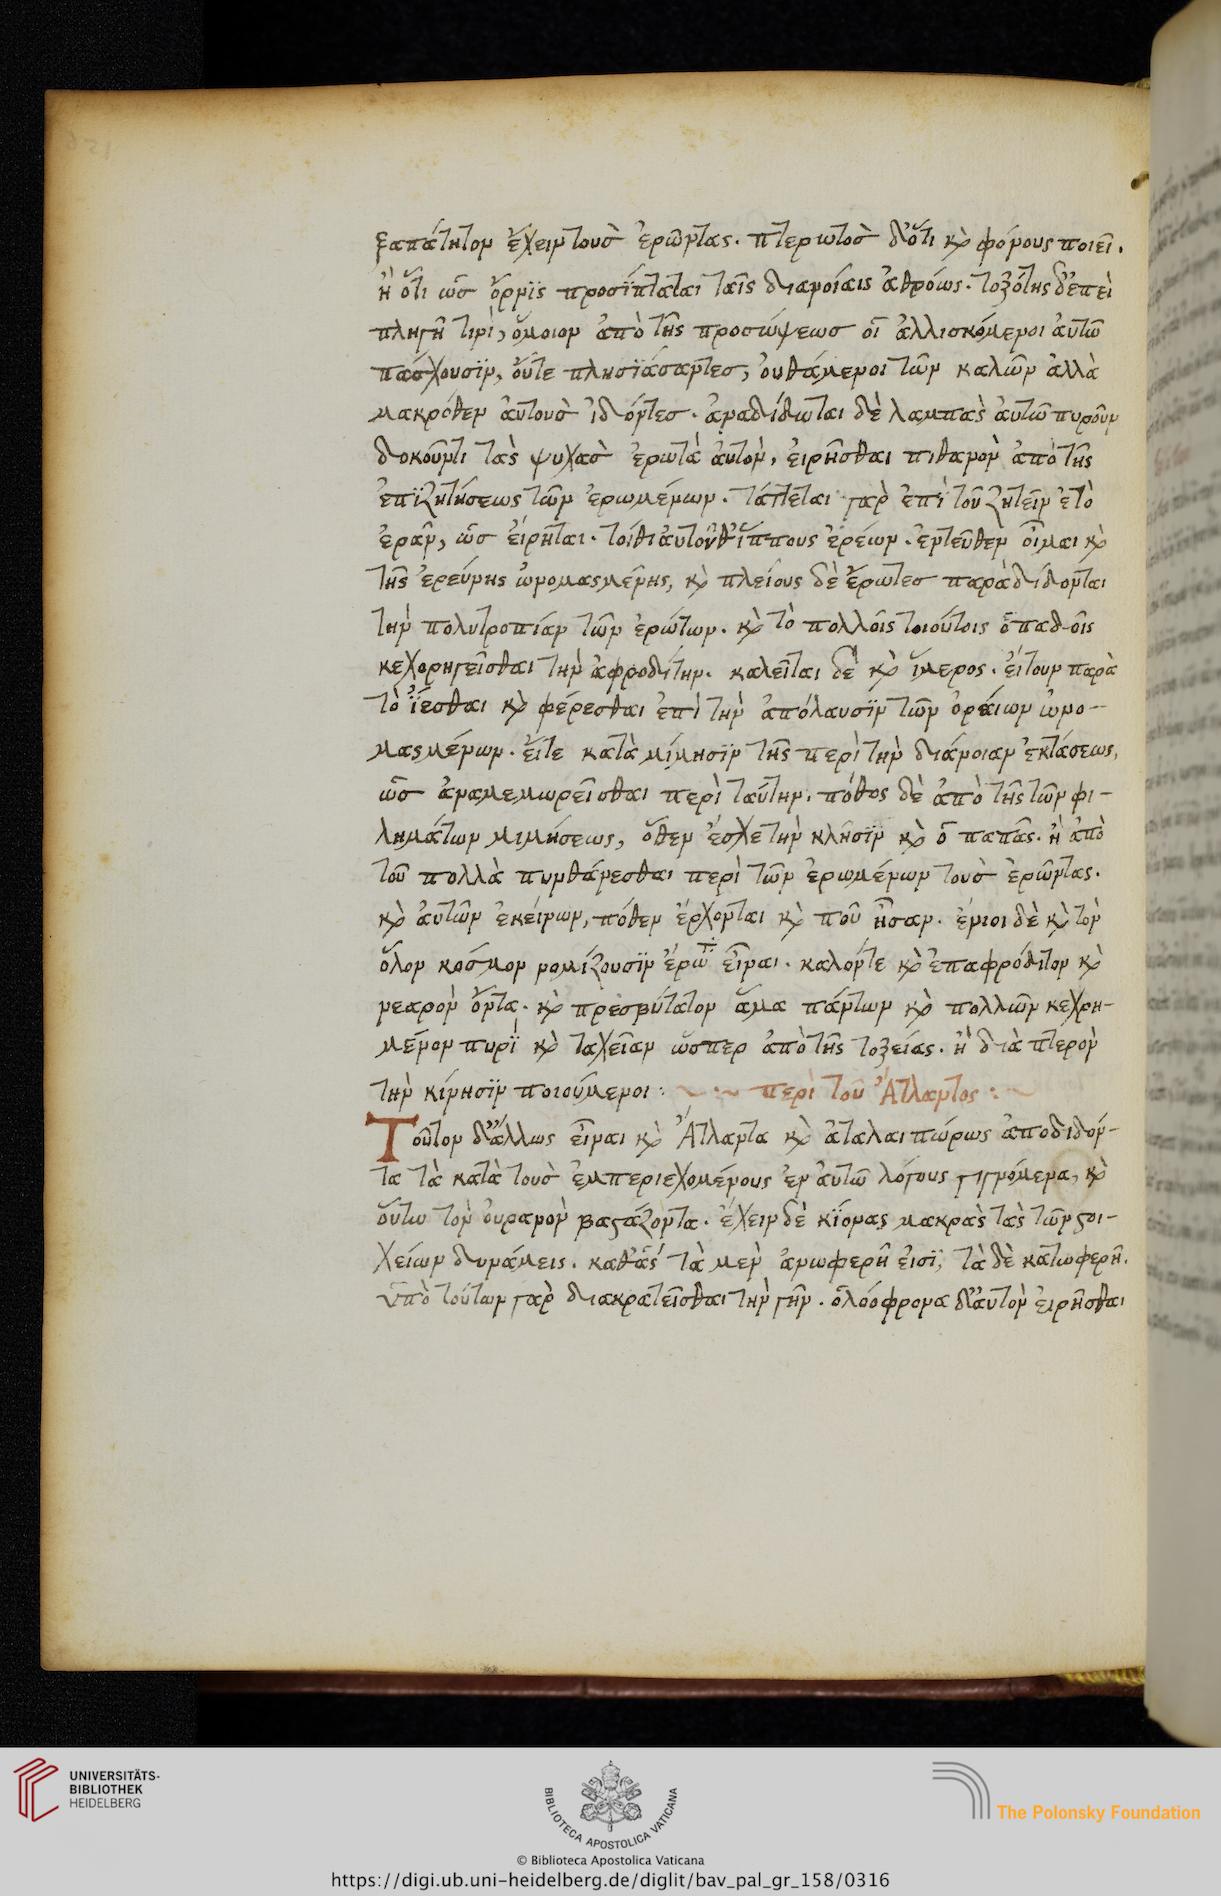 ξαπάτητον ἔχειν τοὺσ ἐρῶντας. πτερωτὸσ δ' ὅτι κὶ φόνους ποιεῖ.
ἢ ὅτι ὡσ ὄρνϊς προσΐπταται ταῖς διανοίαις ἀθρόως. τοξότης δ' ἐπεὶ
πληγῆ τινὶ, ὅμοιον ἀπὸ τῆς προσώψεωσ οἱ ἀλλισκόμενοι ἀυτῶ
πάσχουσϊν, οὔτε πλησϊάσαντεσ, ὀυθάμενοι τῶν καλῶν ἀλλὰ
μακρόθεν ἀυτοὺσ ἰδόντεσ. ἀναδίδωται δὲ λαμπὰς ἀυτῶ πυροῦν
δοκοῦντι τὰς ψυχὰσ ἐρωτὰ ἀυτὸν, ἐιρῆσθαι πιθανὸν ἀπὸ τῆς
ἐπϊζητήσεως τῶν ἐρωμένων. τάττεται γὰρ ἐπὶ τοῦ ζητεῖν ἐτὸ
ἐρᾶν, ὡσ ἐίρηται. τοίθι ἀυτοῦ θ' ἵππους ἐρέων. ἐντεῦθεν οἶμαι κὶ
τῆς ἐρεύνης ὠνομασμένης, κὶ πλείους δὲ ἔρωτεσ παραδίδονται
τὴν πολυτροπίαν τῶν ἐρώτων. κὶ τὸ πολλοῖς τοιούτοις ὀπαδοῖς
κεχορηγεῖσθαι τὴν ἀφροδίτην. καλεῖται δὲ κὶ ἵμερος. ἐίτουν παρὰ
τὸ ἵεσθαι κὶ φέρεσθαι ἐπὶ τὴν ἀπόλαυσϊν τῶν ὁράιων ὠνο-
μασμένων. ἐίτε κατὰ μίμησϊν τῆς περὶ τὴν διάνοιαν ἐκτάσεως,
ὡσ ἀναμεμωρεῖσθαι περὶ ταύτην. πόθος δὲ ἀπὸ τῆς τῶν φι-
λημάτων μιμήσεως, ὅθεν ἔσχε τὴν κλῆσϊν κὶ ὁ παπᾶς. ἢ ἀπὸ
τοῦ πολλὰ πυνθάνεσθαι περὶ τῶν ἐρωμένων τοὺσ ἐρῶντας.
κὶ ἀυτῶν ἐκείνων, πόθεν ἔρχονται κὶ ποῦ ἦσαν. ἔνιοι δὲ κὶ τὸν
ὅλον κόσμον νομίζουσϊν ἔρωτ εἶναι. καλόντε κὶ ἐπαφρόδιτον κὶ
νεαρὸν ὄντα. κὶ πρεσβύτατον ἅμα πάντων κὶ πολλῶν κεχρη-
μένον πυρϊ κὶ ταχεῖαν ὥσπερ ἀπὸ τῆς τοξείας. ἢ διὰ πτερὸν
τὴν κίνησϊν ποιούμενοι : ~ ·~ περὶ τοῦ Ἄτλαντος : ~
Τοῦτον δ' ἄλλως εἶναι κὶ Ἄτλαντα κὶ ἀταλαιπώρως ἀποδιδόν-
τα τὰ κατὰ τοὺσ ἐμπεριεχομένους ἐν ἀυτῶ λόγους γιγνόμενα, κὶ
οὕτω τὸν ὀυρανὸν βαστάζοντα. ἔχειν δὲ κϊονας μακρὰς τὰς τῶν στοι-
χείων δυνάμεις. καθ' ἅς τὰ μὲν ἀνωφερῆ ἐισϊ, τὰ δὲ κατωφερῆ.
ὑπὸ τούτων γὰρ διακρατεῖσθαι τὴν γῆν. ὁλόοφρονα δ' ἀυτὸν ἐιρῆσθαι
UNIVERSITÄTS-
BIBLIOTHEK
HEIDELBERG
BIBLIOTECA APOSTOLICA VATICANA
The Polonsky Foundation
© Biblioteca Apostolica Vaticana
https://digi.ub.uni-heidelberg.de/diglit/bav_pal_gr_158/0316